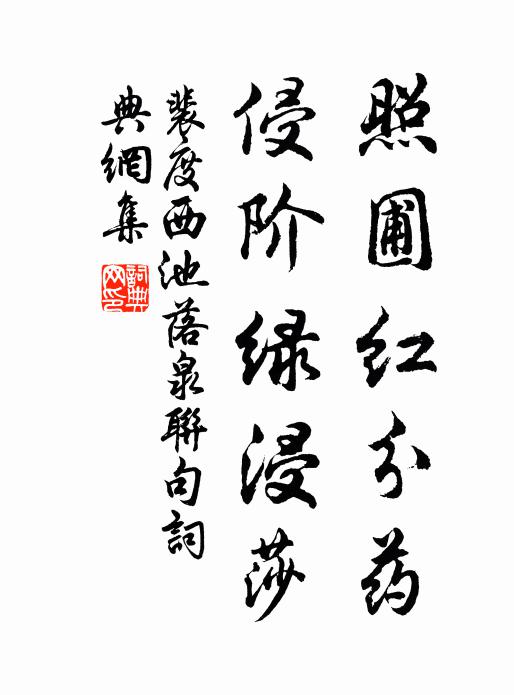 照圃红分药
侵阶绿浸莎
裴度西池落泉聯句詞
典網集
詞典
网印